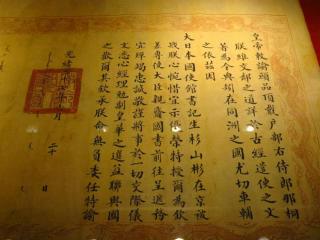 皇帝敕諭頭品頂戴户部右侍郎那桐
朕維交邦之道詳於古經遣使之文
著為令典矧在同洲之國尤切車輔
之依茲因
大日本國使館書記生杉山彬在京被
戕朕心惋惜宜示優榮特授爾為欽
差專使大臣親齎國書前往呈遞務
宜殫竭忠誠敬謹將事於一切交際儀
文悉心經理勉副皇華之選益聯與國
之歡爾其欽承朕命無負委任特諭
光緒 月 二十 日